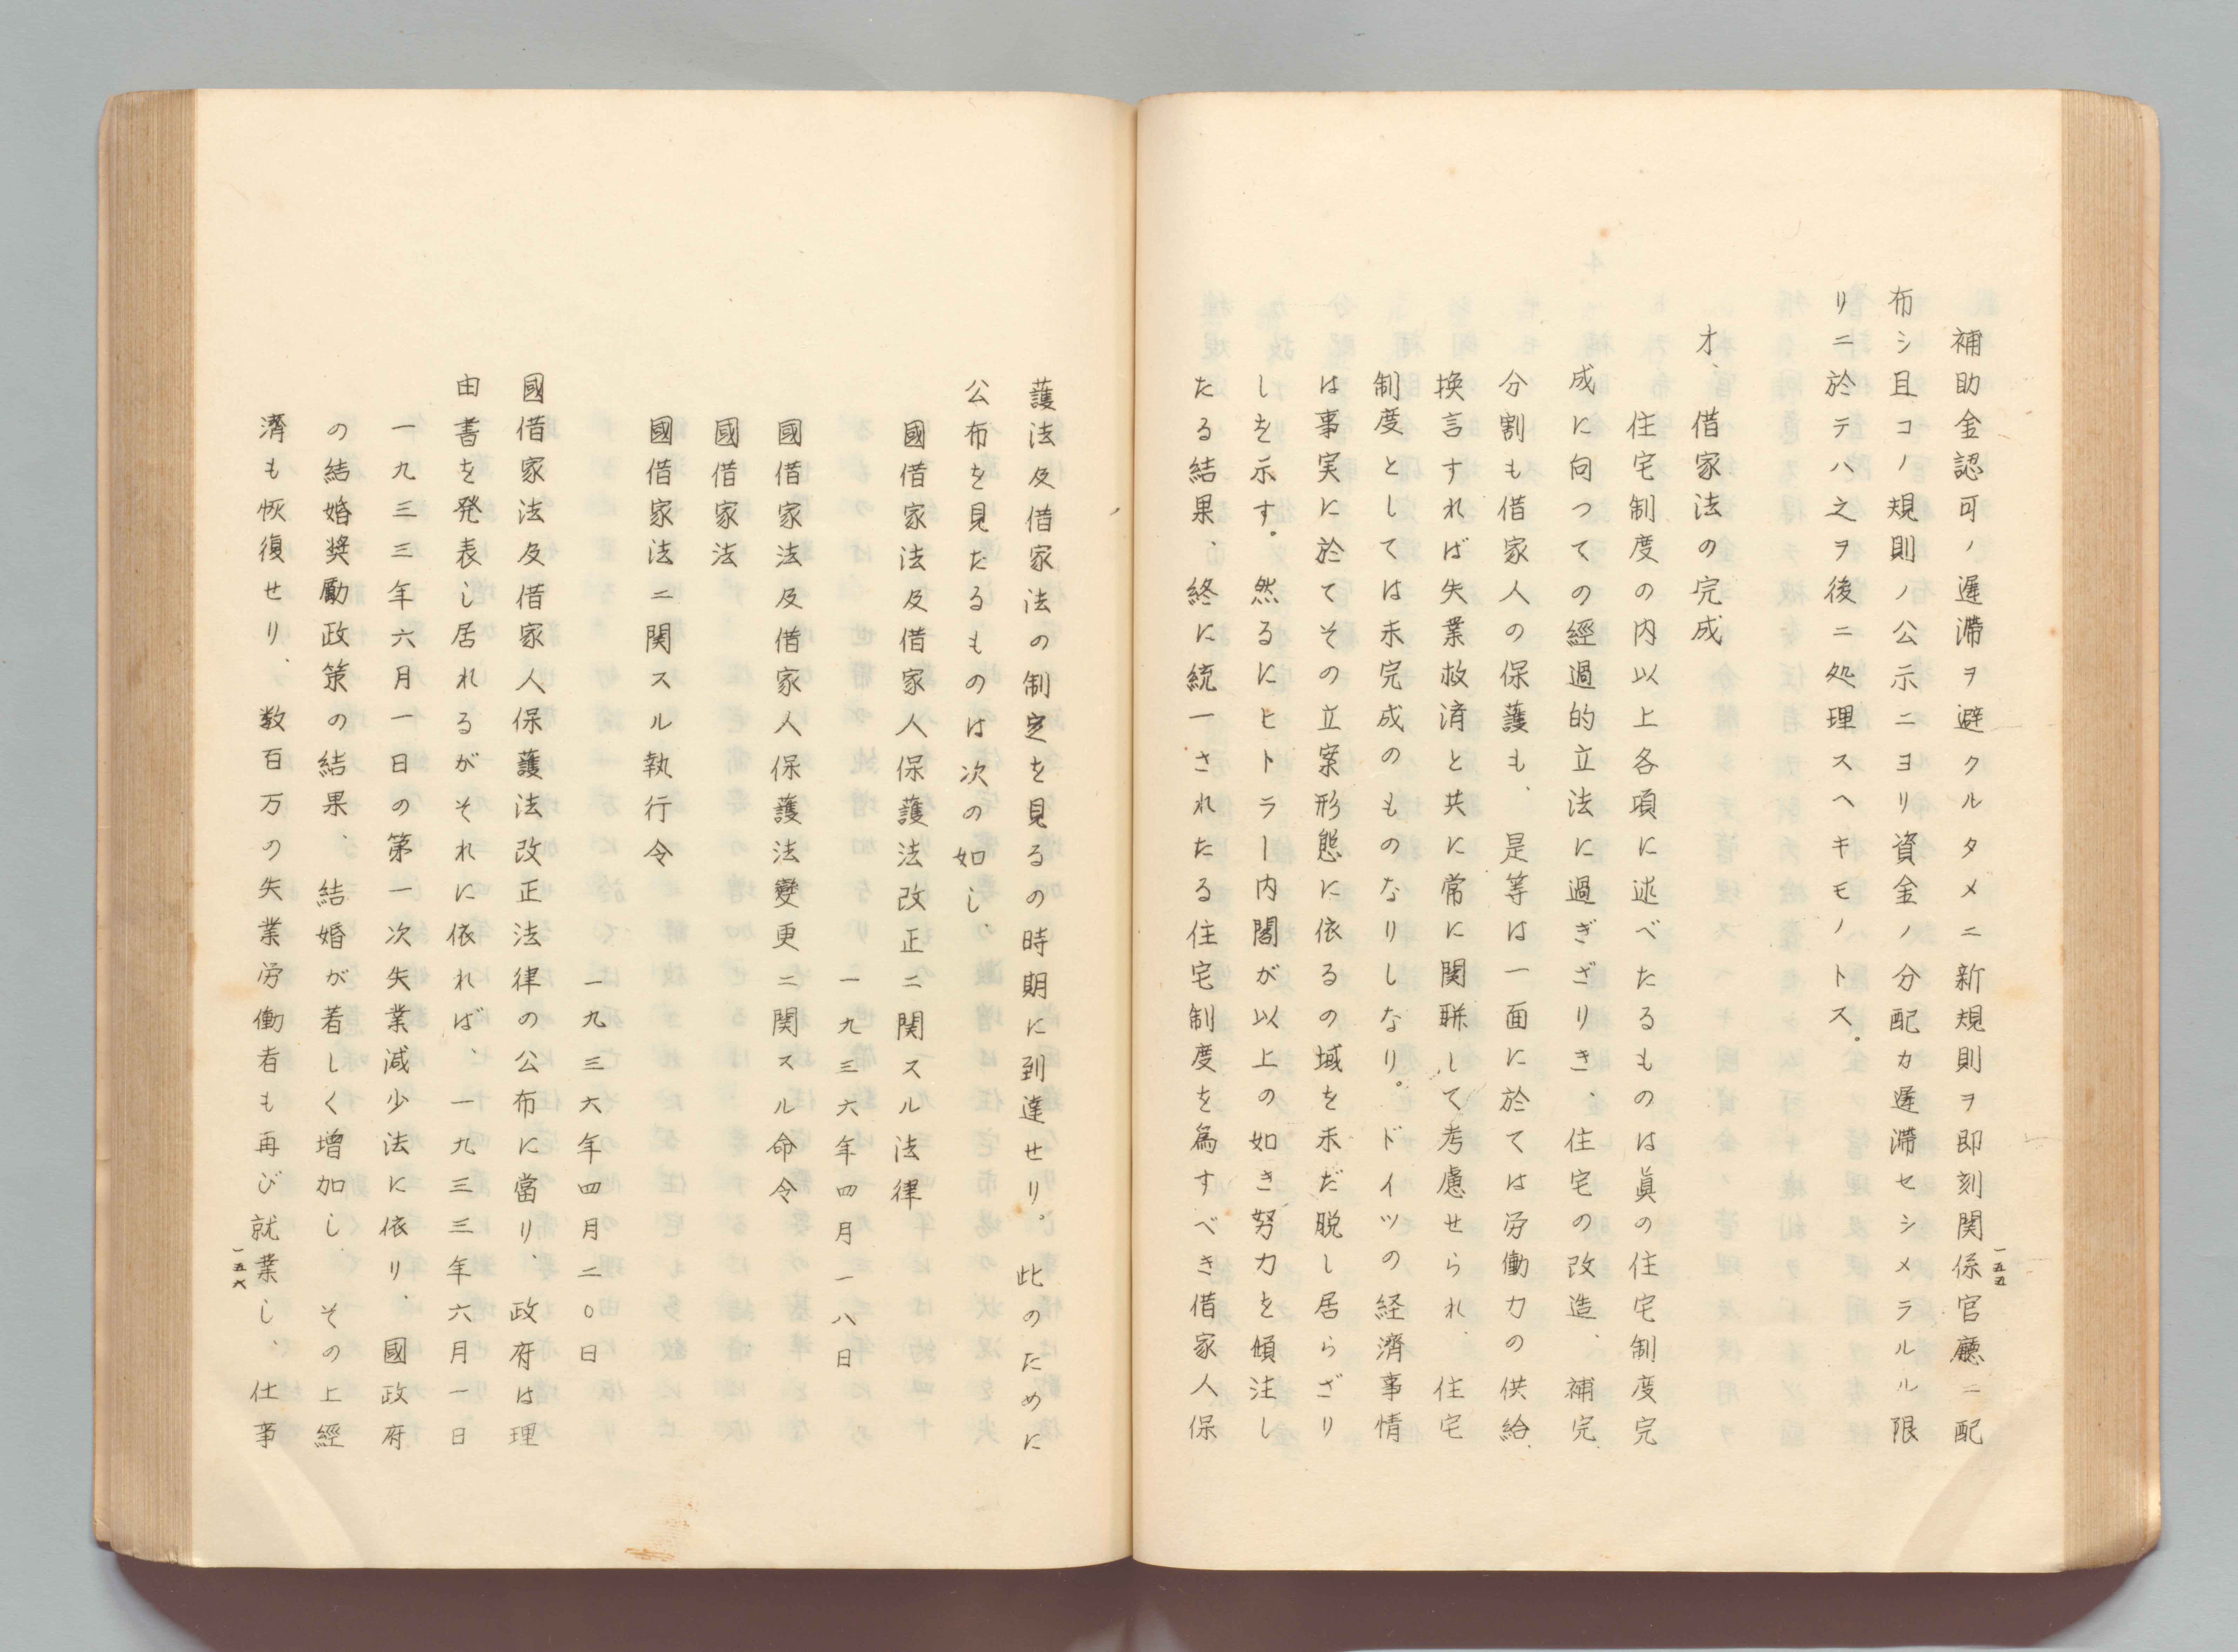 補助金認可ノ遅滞ヲ避クルタメニ新規則ヲ即刻関係官廳ニ配
布シ且コノ規則ノ公示ニヨリ資金ノ分配カ遅滞セシメラルル限
リニ於テハ之ヲ後ニ処理スヘキモノトス。
オ、借家法の完成
住宅制度の内以上各項に述べたるものは眞の住宅制度完
成に向つての經過的立法に過ぎざりき、住宅の改造、補完、
分割も借家人の保護も、是等は一面に於ては労働力の供給、
換言すれば失業救済と共に常に関聯して考慮せられ、住宅
制度としては未完成のものなりしなり。ドイツの経濟事情
は事実に於てその立案形態に依るの域を未だ脱し居らざり
しを示す。然るにヒトラー内閣が以上の如き努力を傾注し
たる結果、終に統一されたる住宅制度を為すべき借家人保
一五五
護法及借家法の制定を見るの時期に到達せり。此のために
公布を見たるものは次の如し、
國借家法及借家人保護法改正ニ関スル法律
一九三六年四月一八日
國借家法及借家人保護法變更ニ関スル命令
國借家法
國借家法ニ関スル執行令
一九三六年四月二〇日
國借家法及借家人保護法改正法律の公布に當り、政府は理
由書を発表し居れるがそれに依れば、一九三三年六月一日
一九三三年六月一日の第一次失業減少法に依り、國政府
の結婚奨勵政策の結果、結婚が著しく増加し、その上經
濟も恢復せり、数百万の失業労働者も再び就業し、仕事
一五六